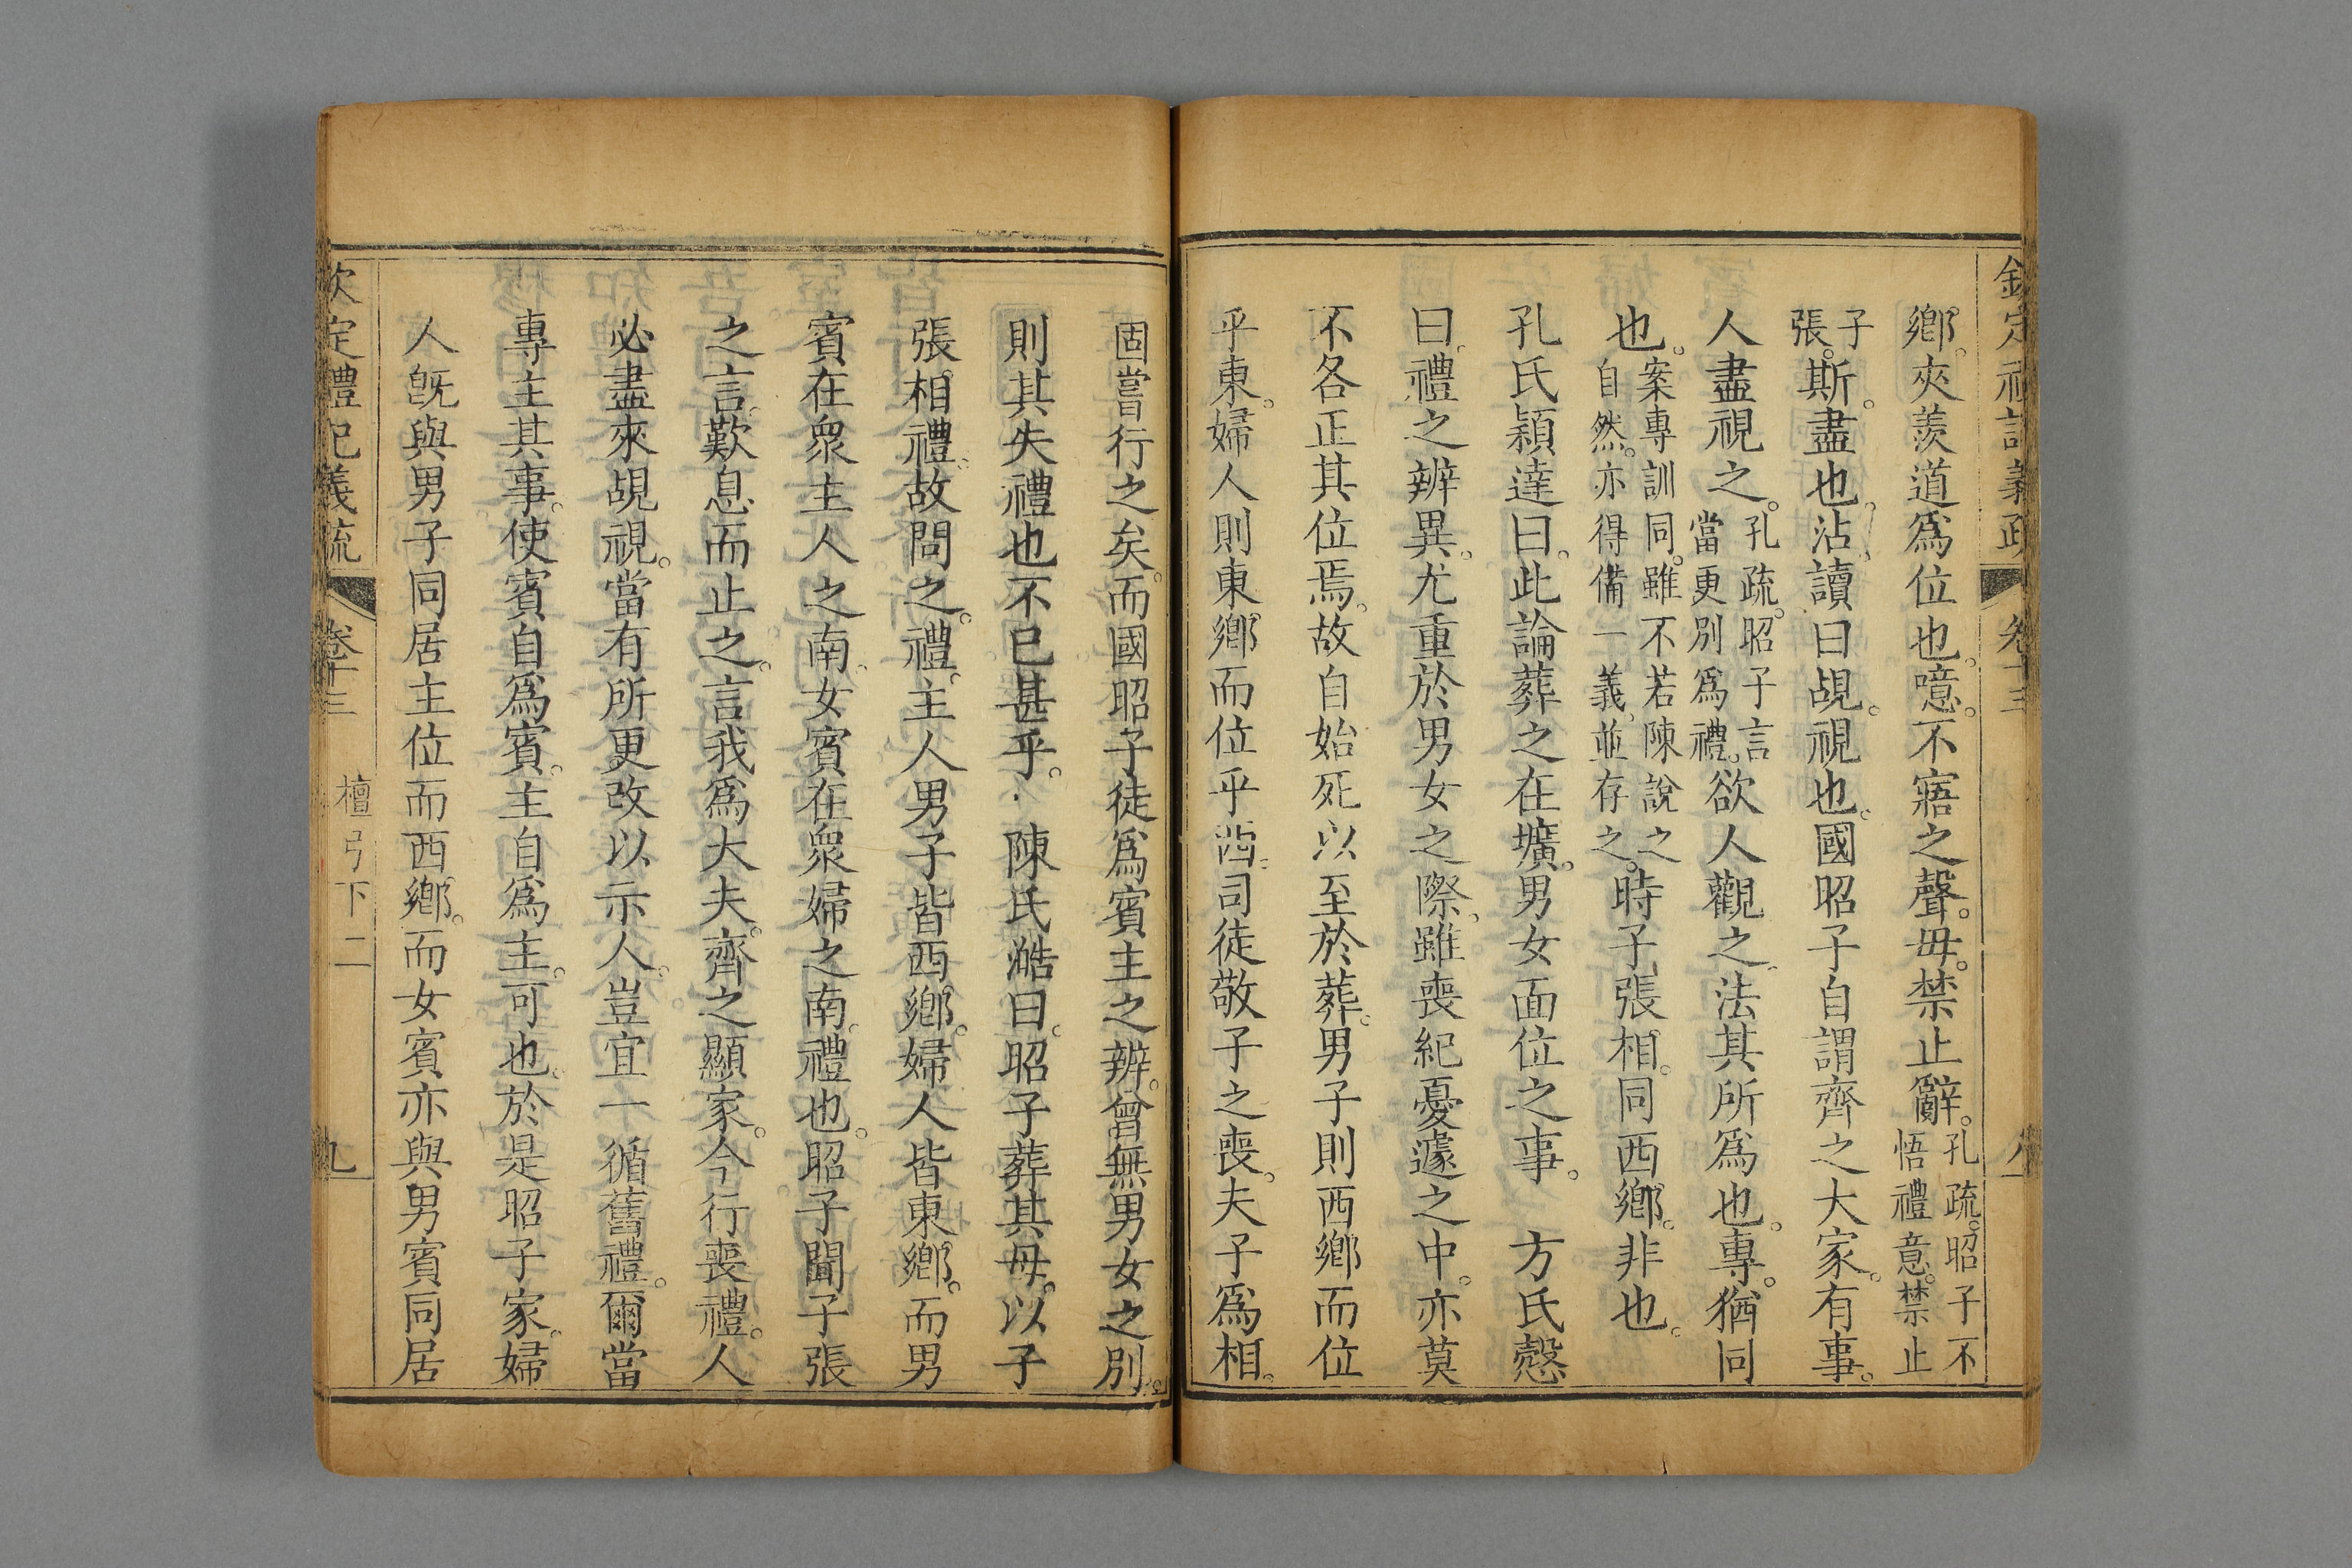 欽定禮記義疏 卷十三 八
鄉。夾羨道爲位也。噫。不寤之聲。毋。禁止辭。孔疏。昭子不悟禮意。禁止
子張。斯。盡也。沾。讀曰覘。視也。國昭子自謂齊之大家。有事。
人盡視之。孔疏。昭子言當更別爲禮。欲人觀之。法其所爲也。專。猶同
也。案專訓同。雖不若陳說之自然。亦得備一義。並存之。時子張相。同西鄉。非也。
孔氏穎達曰。此論葬之在壙。男女面位之事。 方氏慤
曰。禮之辨異。尤重於男女之際。雖喪紀憂遽之中。亦莫
不各正其位焉。故自始死以至於葬。男子則西鄉而位
乎東。婦人則東鄉而位乎西。司徒敬子之喪。夫子爲相。
固嘗行之矣。而國昭子徒爲賓主之辨。曾無男女之別。
則其失禮也不已甚乎。 陳氏澔曰。昭子葬其母。以子
張相禮。故問之。禮。主人男子皆西鄉。婦人皆東鄉。而男
賓在衆主人之南。女賓在衆婦之南。禮也。昭子聞子張
之言。歎息而止之。言我爲大夫。齊之顯家。今行喪禮。人
必盡來覘視。當有所更改以示人。豈宜一循舊禮。爾當
專主其事。使賓自爲賓。主自爲主。可也。於是昭子家。婦
人旣與男子同居主位而西鄉。而女賓亦與男賓同居
欽定禮記義疏 卷十三 檀弓下二 九